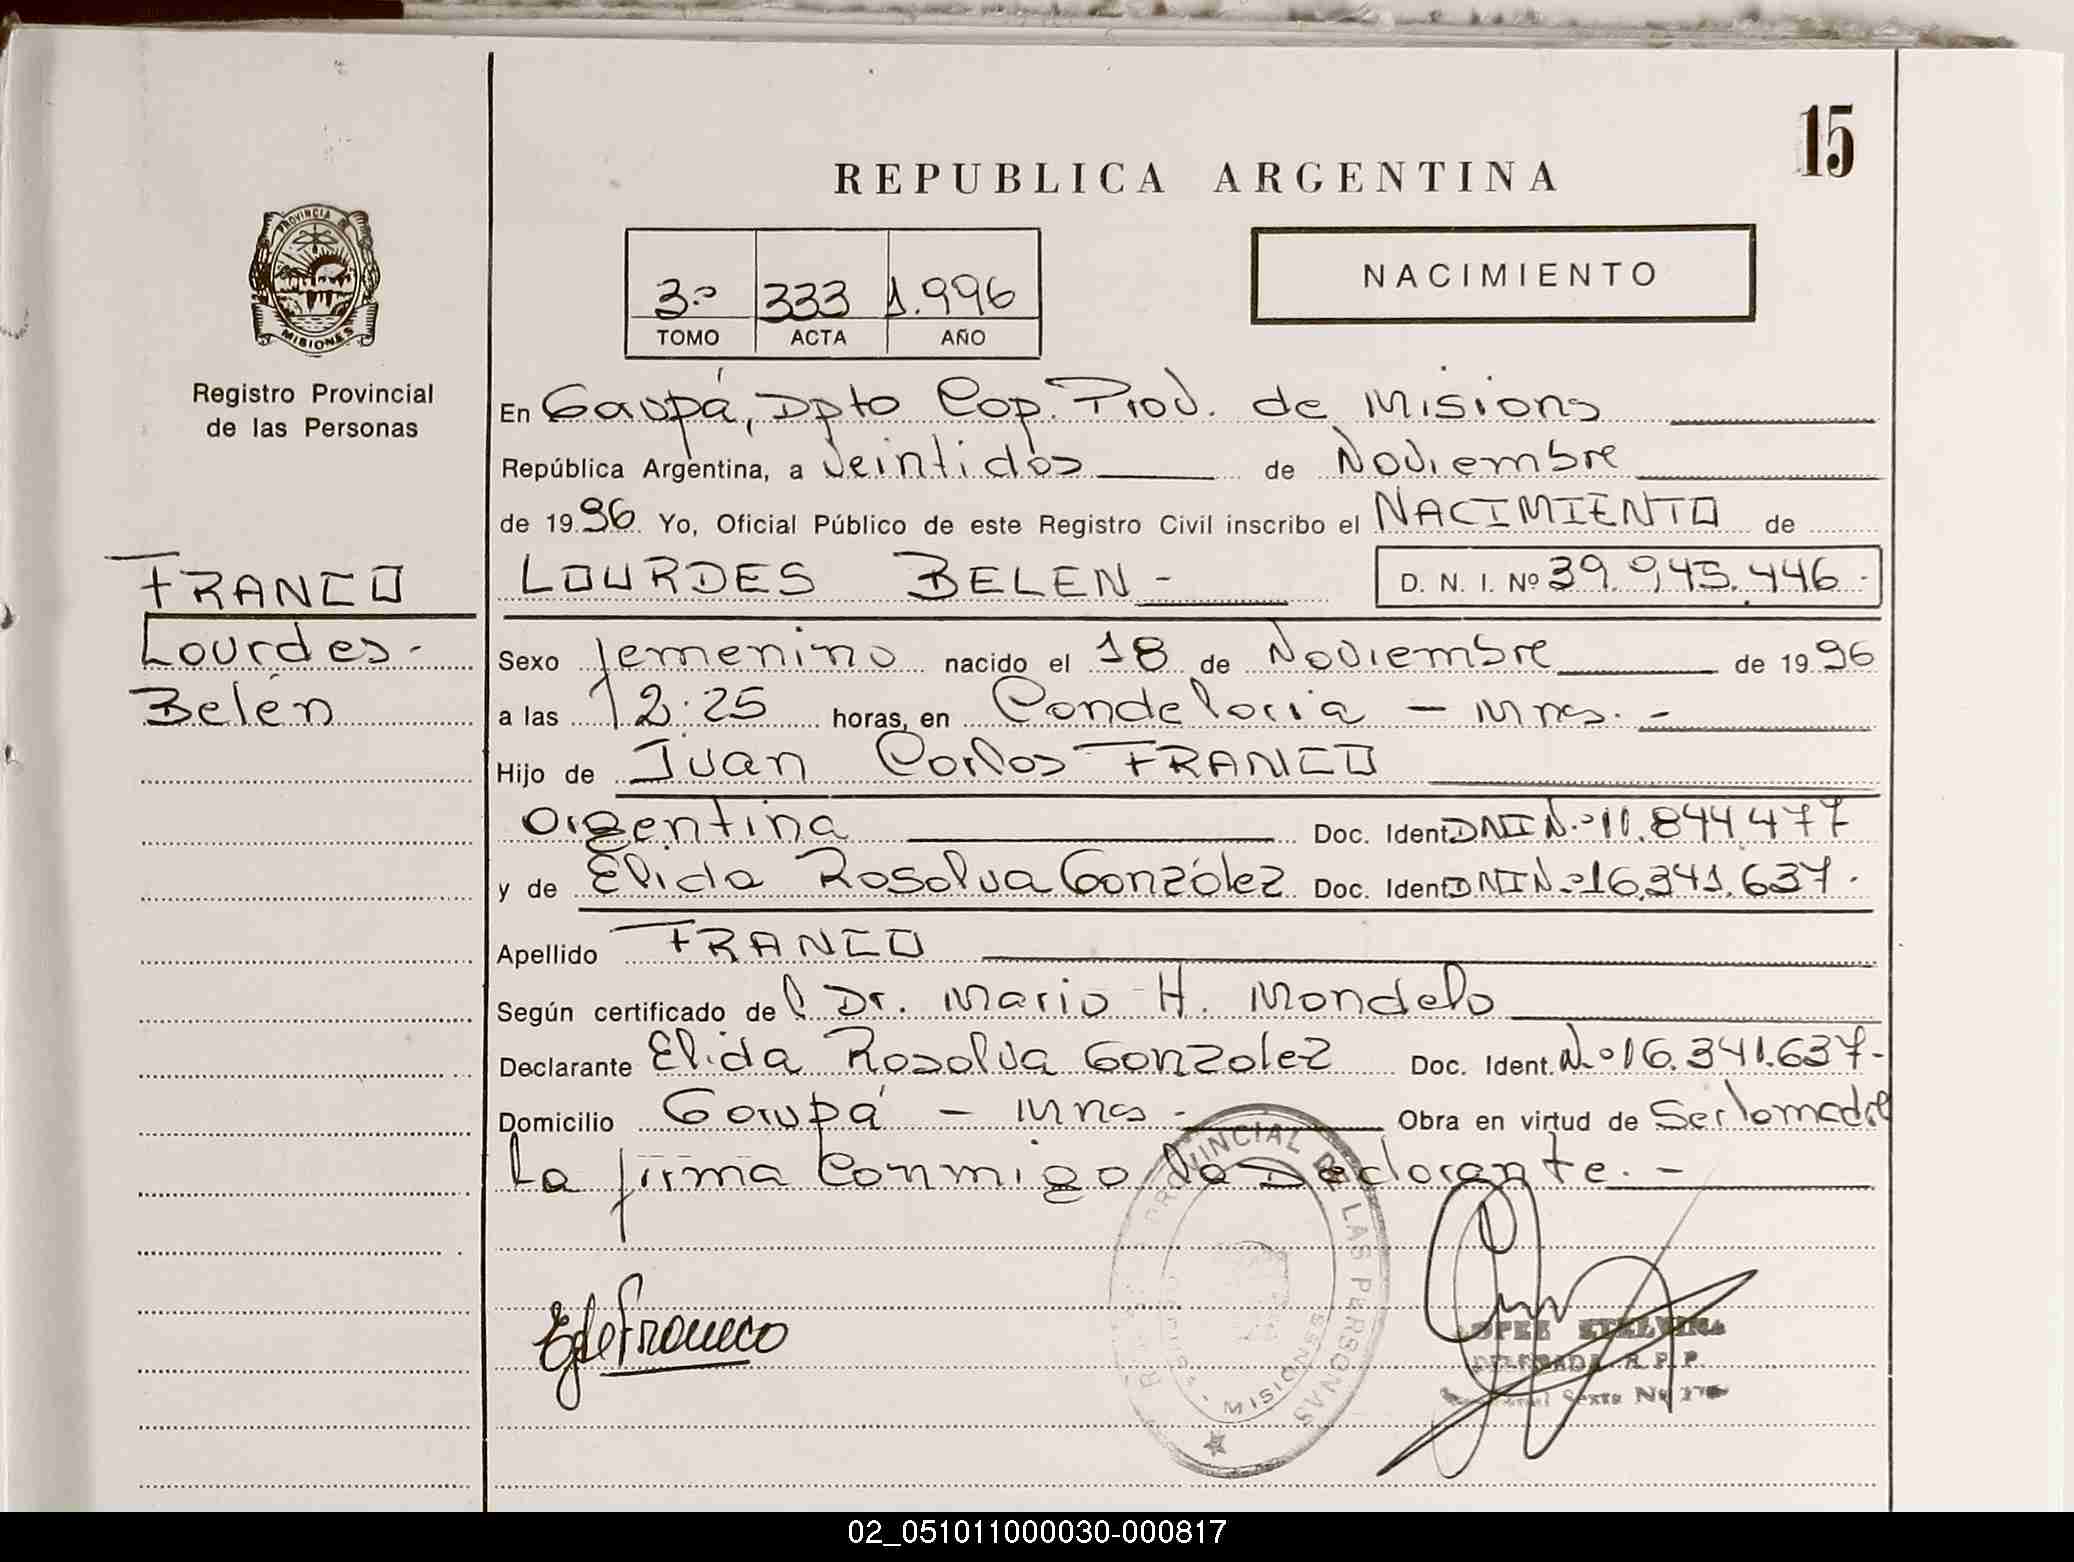 15
REPUBLICA ARGENTINA
PROVINCIA DE
MISIONES
3.º 333 1.996
TOMO ACTA AÑO
NACIMIENTO
Registro Provincial
de las Personas
En Garupá, Dpto Cap. Prov. de Misions
República Argentina, a Veintidos de Noviembre
de 1996. Yo, Oficial Público de este Registro Civil inscribo el NACIMIENTO de
FRANCO
Lourdes.-
Belén
LOURDES BELEN - D. N. I. Nº 39.945.446.-
Sexo femenino nacido el 18 de Noviembre de 1996
a las 12:25 horas, en Candelaria - Mnes. -
Hijo de Juan Carlos FRANCO
Argentina Doc. Ident DNI N.º 11.844.477
y de Elida Rosalva González Doc. Ident DNI N.º 16.341.637.
Apellido FRANCO
Según certificado del Dr. Mario H. Mondelo
Declarante Elida Rosalva Gonzalez Doc. Ident. N.º 16.341.637-
Domicilio Garupá - Mnes - Obra en virtud de Ser la madre
La firma Conmigo la Declarante. -
PROVINCIAL DE LAS PERSONAS
MISIONES
E de Franco
LOPEZ ETELVINA
DELEGADA R. P. P.
02_051011000030-000817